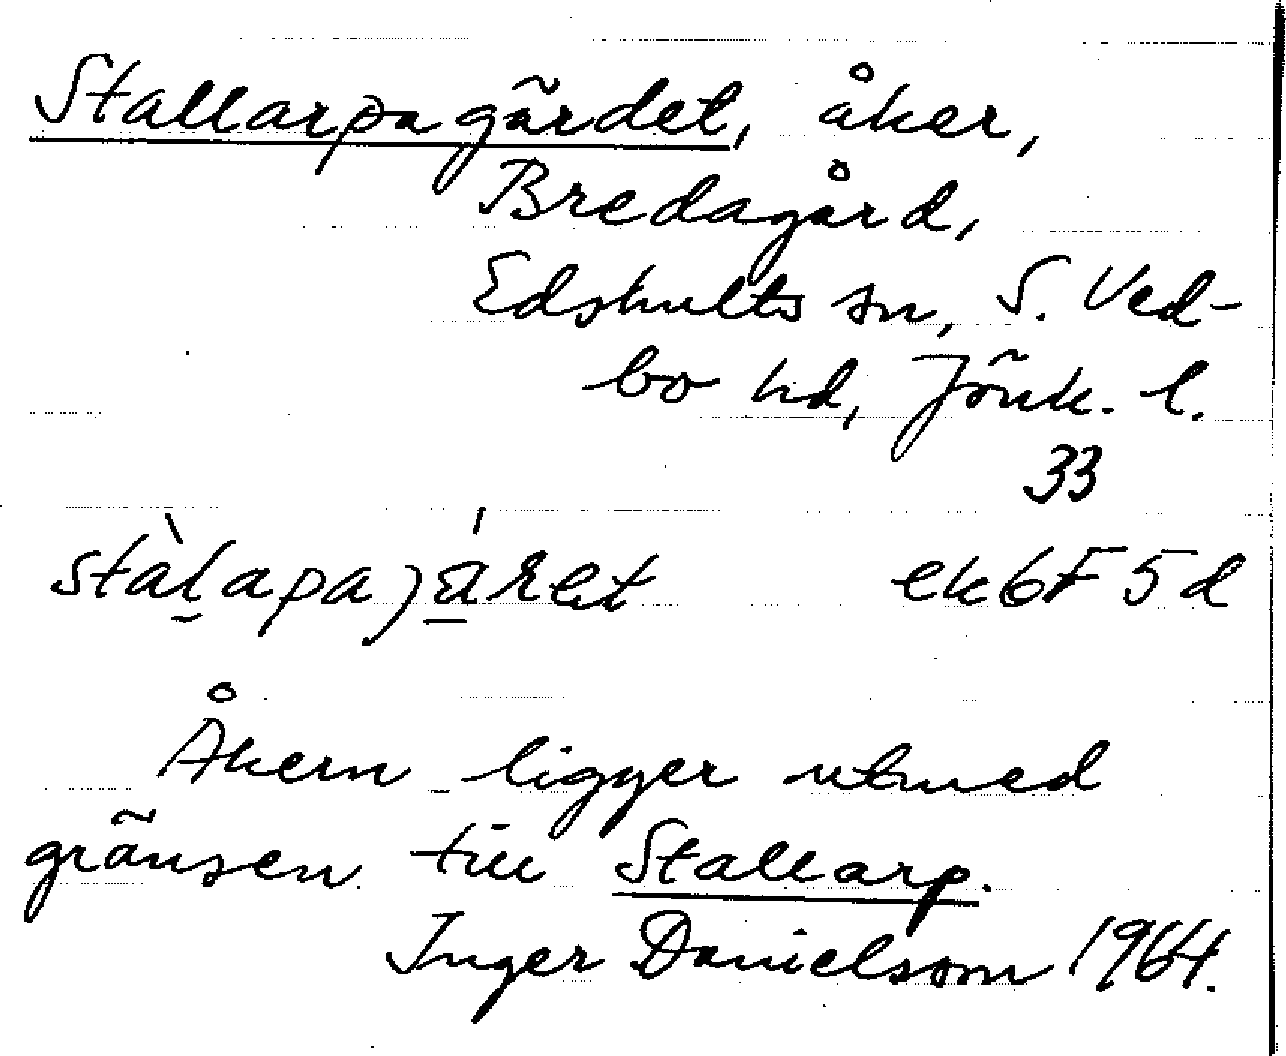 Stallarpagärdet, åker,
Bredagård,
Edshults sn, S. Ved-
bo hd, Jönk. l.
33
stàl̲apa)á̲ret ek6F5d
Åkern ligger utmed
gränsen till Stallarp.
Inger Danielsson 1964.